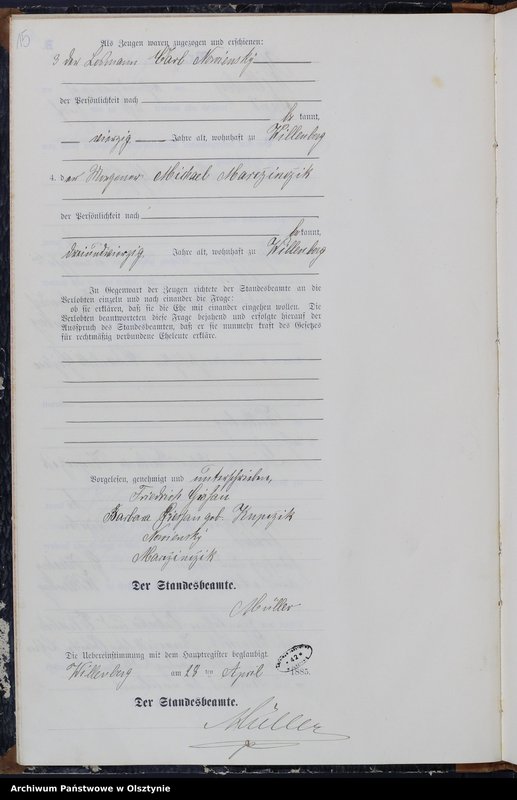 Als Zeugen waren zugezogen und erschienen:
3 der Losmann Carl
der Persönlichkeit nach
be kannt,
vierzig Jahre alt, wohnhaft zu Willenberg
4. der Michael Marczinczik
der Persönlichkeit nach
be kannt,
dreiundvierzig Jahre alt, wohnhaft zu Willenberg
In Gegenwart der Zeugen richtete der Standesbeamte an die
Verlobten einzeln und nach einander die Frage:
ob sie erklären, daß sie die Ehe mit einander eingehen wollen. Die
Verlobten beantworteten diese Frage bejahend und erfolgte hierauf der
Ausspruch des Standesbeamten, daß er sie nunmehr kraft des Gesetzes
für rechtmäßig verbundene Eheleute erkläre.
Vorgelesen, genehmigt und unterschrieben,
Friedrich
Barbara geb. Kupczik
Marczinczik
Der Standesbeamte.
Müller
Die Uebereinstimmung mit dem Hauptregister beglaubigt.
Willenberg am 28 ten April 1885.
Der Standesbeamte.
Müller
Archiwum Państwowe w Olsztynie